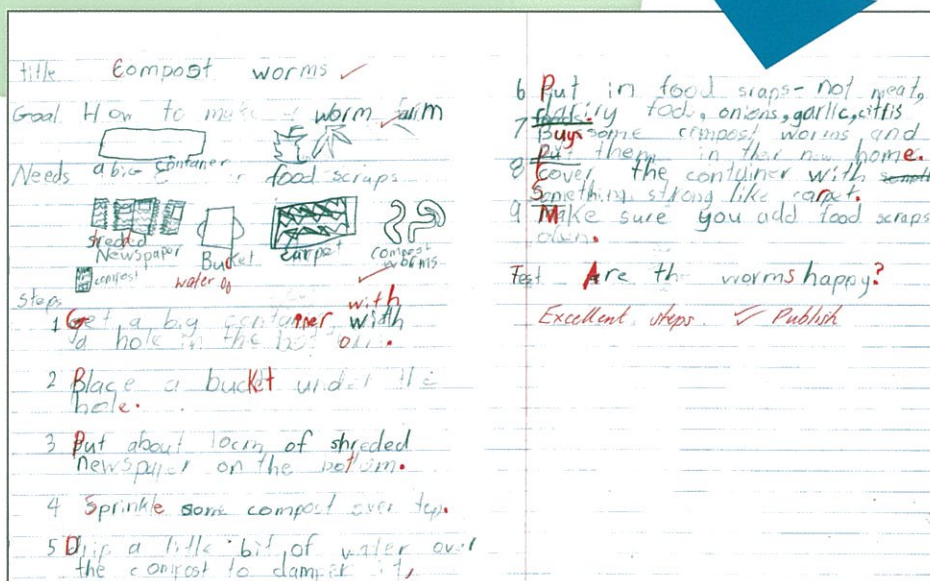 title Compost worms
Goal How to make a worm farm
Needs a big container food scraps
shredded
Newspaper
Bucket
carpet
compost
worms
compost
water
Steps
with
1 Get a big container with
a hole in the bottom.
2 Place a bucket under the
hole.
3 Put about 10cm of shreded
newspaper on the bottom.
4 Sprinkle some compost over top.
5 Drip a little bit of water over
the compost to dampen it,
6 Put in food scraps - not meat,
dairiry food, onions, garlic, citris
7 Buy some compost worms and
put them in their new home.
8 Cover the container with
Something strong like carpet.
9 Make sure you add food scraps
Test Are the worms happy?
Excellent steps. Publish